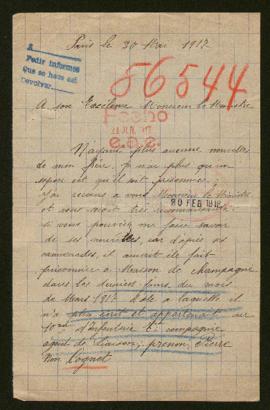 Paris le 30 Mai 1917
A
Pedir informes
Que se hace así
Devolver
56544
A son Excellence Monsieur le Ministre
Fecho
N'ayant plus aucune nouvelle
de mon frère, je n'ai plus qu'un
espoir est qu'il soit prisonnier.
J'ai recours à vous Monsieur le Ministre
20 FEB 1918
et vous serait très reconnaissante
si vous pouviez me faire savoir
de ses nouvelles, car d'après ses
camarades, il aurait été fait
prisonnier à Maison de champagne
dans les derniers jours du mois
de Mars 1917 date à laquelle il
n'a plus écrit et appartenait au
d'infanterie compagnie
agent de liaison, prénom Pierre
Nom Coquet